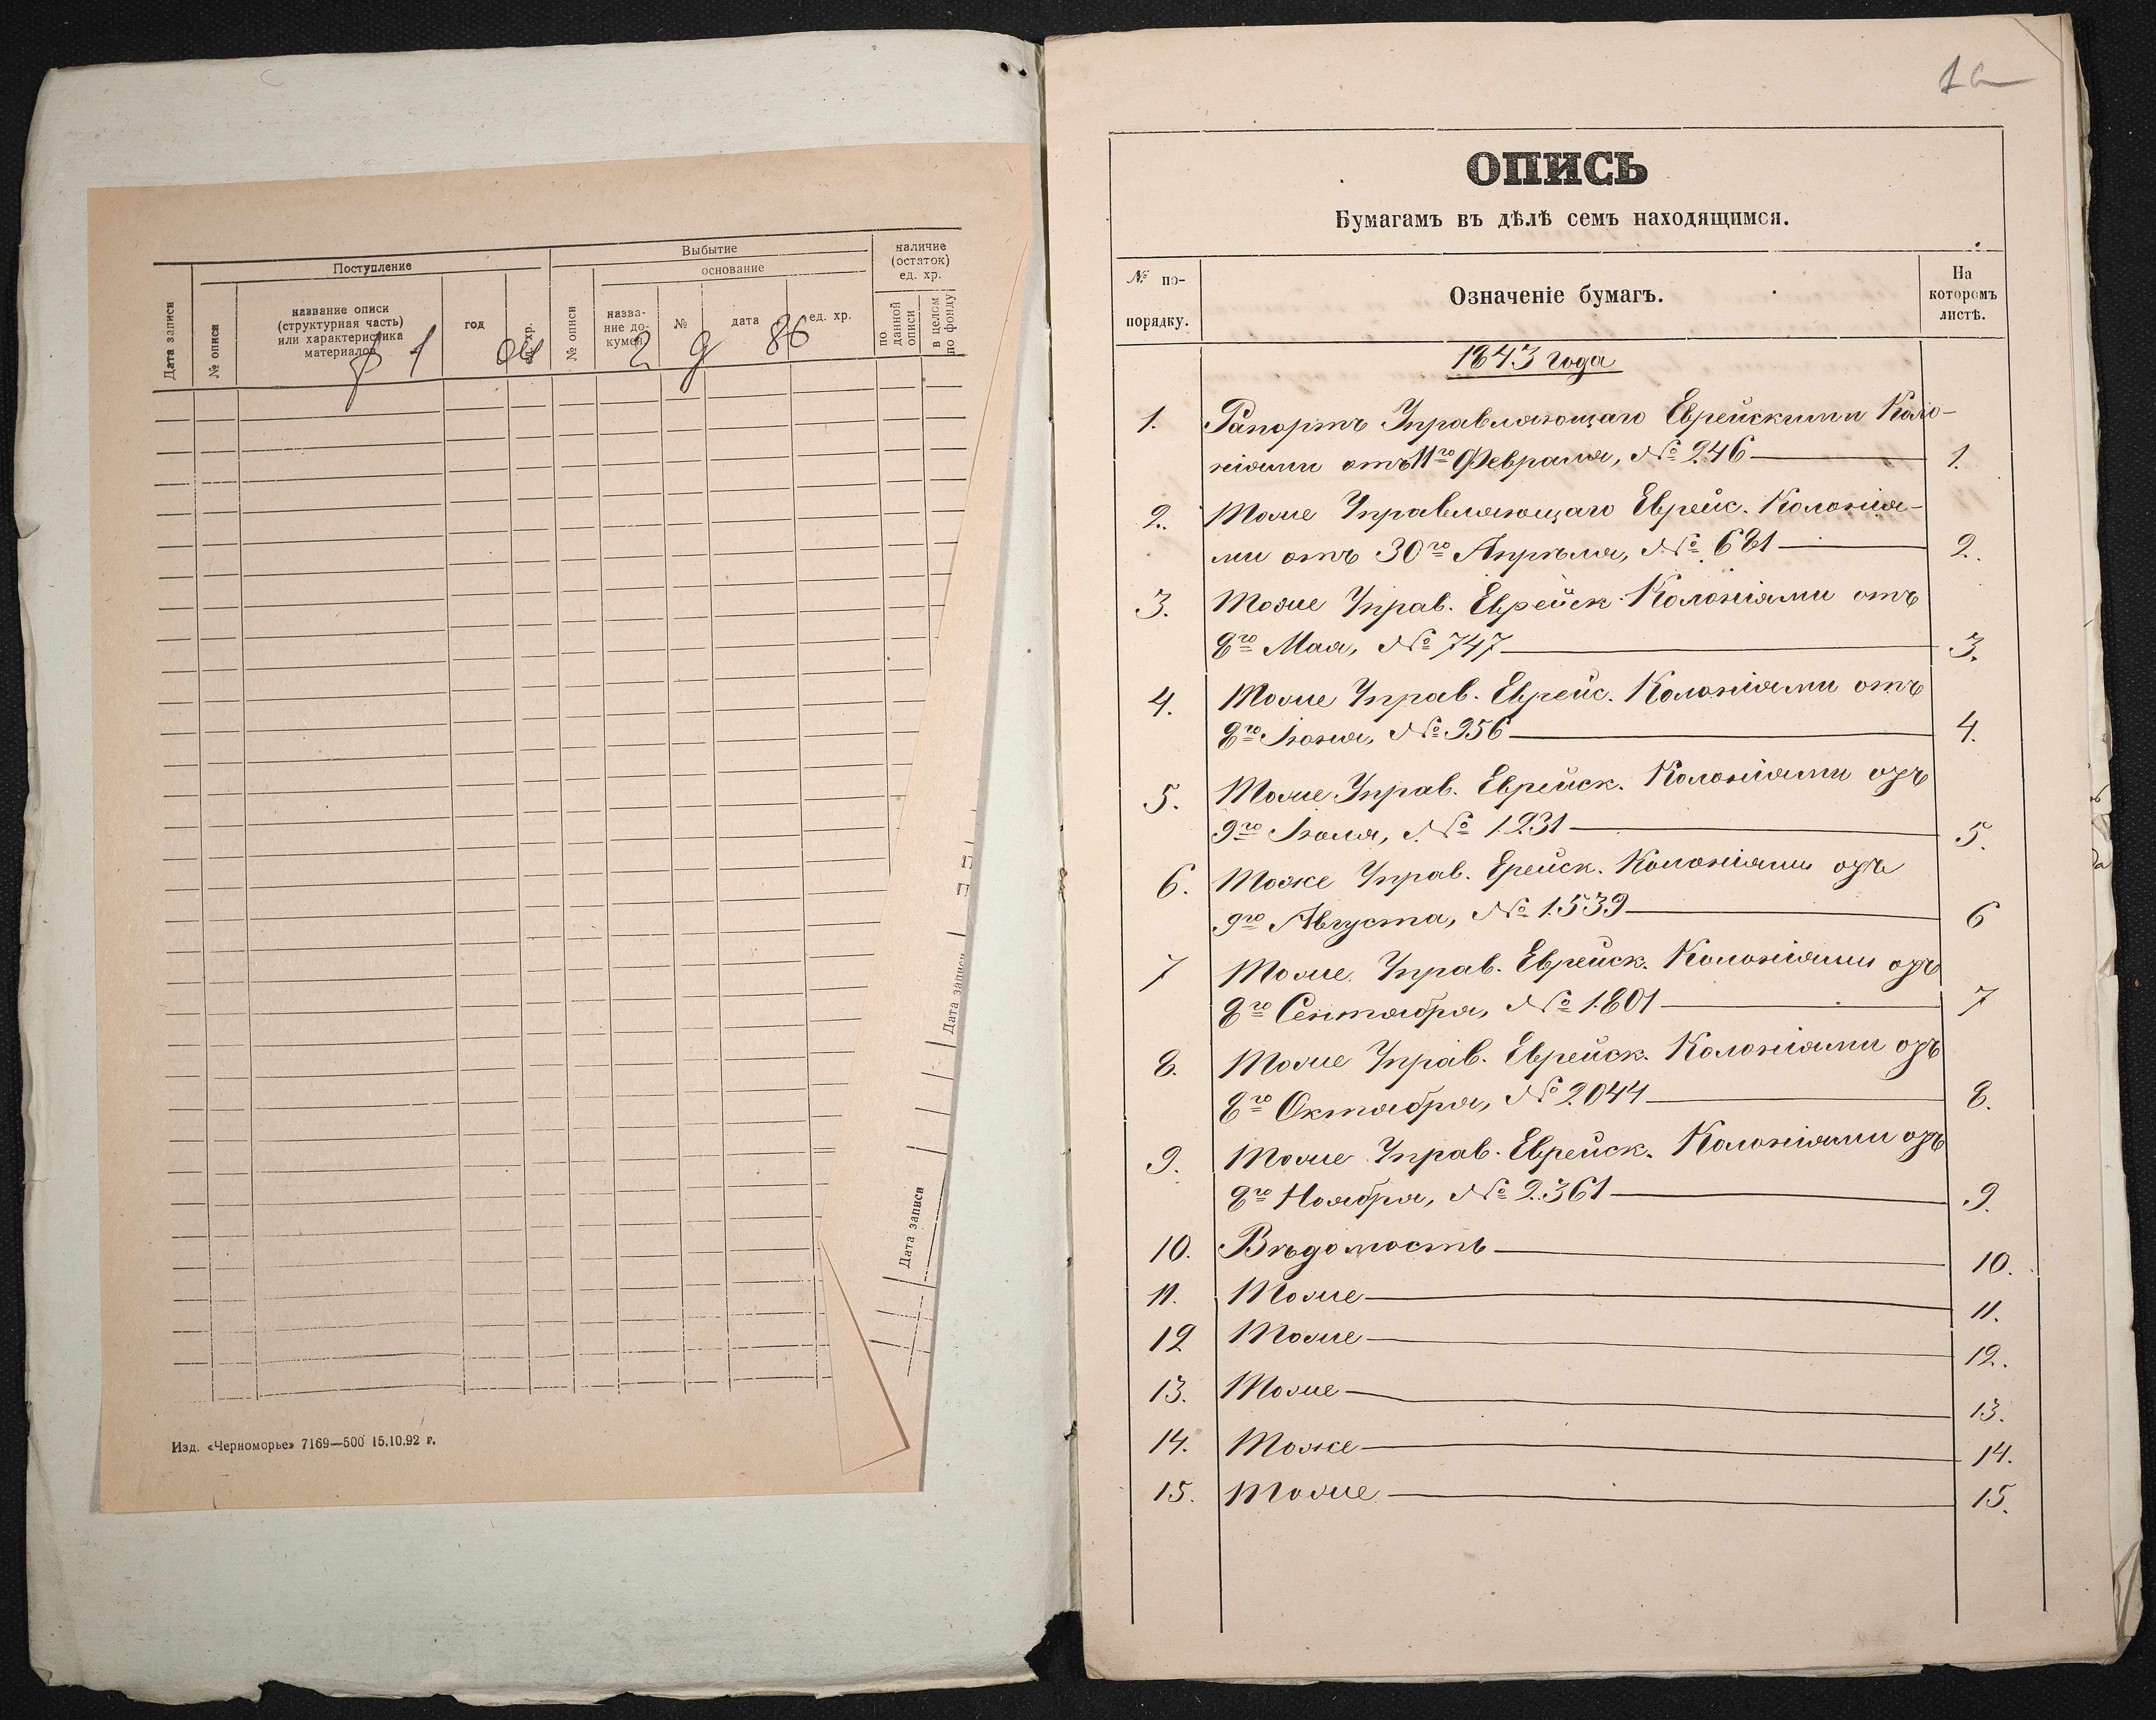 Поступление
Выбытие
наличие
(остаток)
ед. хр.
основание
Дата записи
№ описи
название описи
(структурная часть)
или характеристика
материалов
год
ед. хр.
№ описи
назва-
ние до-
кумен.
№
дата
ед. хр.
по
данной
описи
в целом
по фонду
ф 1 оп 2 д 86
Дата записи
Дата записи
Изд. «Черноморье» 7169—500 15.10.92 г.
1а
ОПИСЬ
Бумагамъ въ дѣлѣ семъ находящимся.
№ по-
порядку.
Означеніе бумагъ.
На
которомъ
листѣ.
1843 года
1. Рапортъ Управляющаго Еврейскими Коло-
ніями отъ 11го Февраля, № 246 — 1.
2. Тоже Управляющаго Еврейс. Колонія-
ми отъ 30го Апрѣля, № 681 — 2.
3. Тоже Управ. Еврейск. Колоніями отъ
8го Мая, № 747 — 3.
4. Тоже Управ. Еврейс. Колоніями отъ
8го Іюня, № 956 — 4.
5. Тоже Управ. Еврейск. Колоніями отъ
9го Іюля, № 1231 — 5.
6. Тоже Управ. Ерейск. Колоніями отъ
9го Августа, № 1539 — 6
7 Тоже Управ. Еврейск. Колоніями отъ
8го Сентября, № 1801 — 7
8. Тоже Управ. Еврейск. Колоніями отъ
8го Октября, № 2044 — 8.
9. Тоже Управ. Еврейск. Колоніями отъ
8го Ноября, № 2361 — 9.
10. Вѣдомость — 10.
11. Тоже — 11.
12 Тоже — 12.
13. Тоже — 13.
14. Тоже — 14.
15. Тоже — 15.